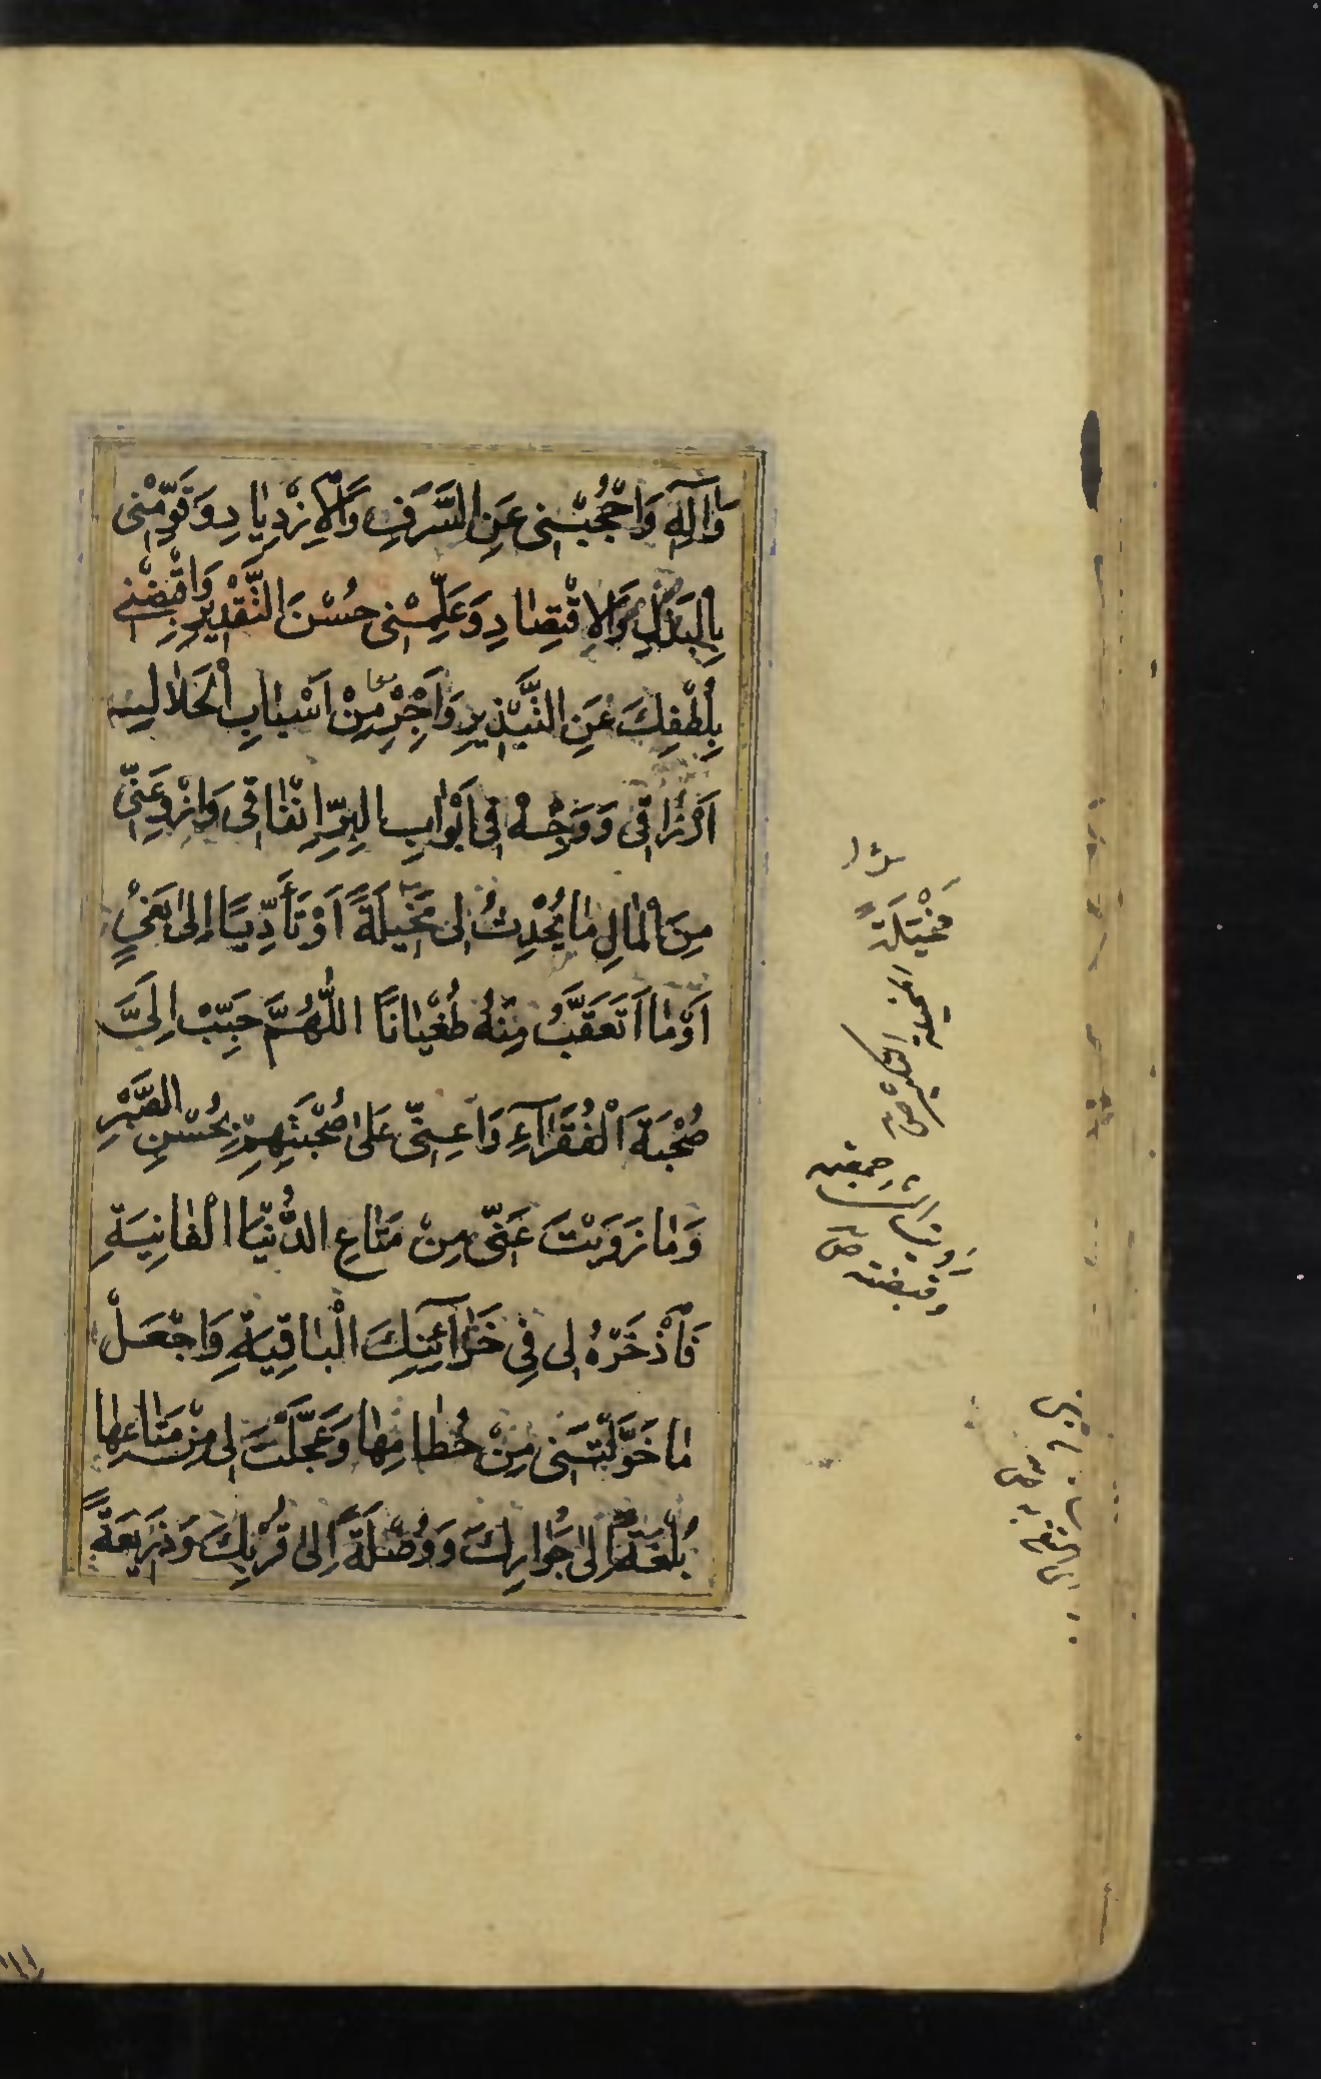 وَآلِهِ وَاحْجُبْنِي عَنِ السَّرَفِ وَالْاِزْدِيَادِ وَقَوِّمْنِي
بِالْبَذْلِ وَالِاقْتِصَادِ وَعَلِّمْنِي حُسْنَ التَّقْدِيرِ وَاقْبِضْنِي
بِلُطْفِكَ عَنِ التَّبْذِيرِ وَاَجْرِ مِنْ اَسْبَابِ الْحَلَالِ
اَرْزَاقِي وَوَجِّهْ فِي اَبْوَابِ الْبِرِّ اِنْفَاقِي وَازْوِ عَنِّي
مِنَ الْمَالِ مَا يُحْدِثُ لِي مَخِيلَةً اَوْ تَأَدِّيًا اِلَى بَغْيٍ
اَوْ مَا اَتَعَقَّبُ مِنْهُ طُغْيَانًا اللّٰهُمَّ حَبِّبْ اِلَيَّ
صُحْبَةَ الْفُقَرَآءِ وَاَعِنِّي عَلَى صُحْبَتِهِمْ بِحُسْنِ الصَّبْرِ
وَمَا زَوَيْتَ عَنِّي مِنْ مَتَاعِ الدُّنْيَا الْفَانِيَةِ
فَاذْخَرْهُ لِي فِي خَزَآئِنِكَ الْبَاقِيَةِ وَاجْعَلْ
مَا خَوَّلْتَنِي مِنْ حُطَامِهَا وَعَجَّلْتَ لِي مِنْ مَتَاعِهَا
بُلْغَةً اِلَى جِوَارِكَ وَوُصْلَةً اِلَى قُرْبِكَ وَذَرِيعَةً
مَخْيَلَةً
المخيلة التكبر